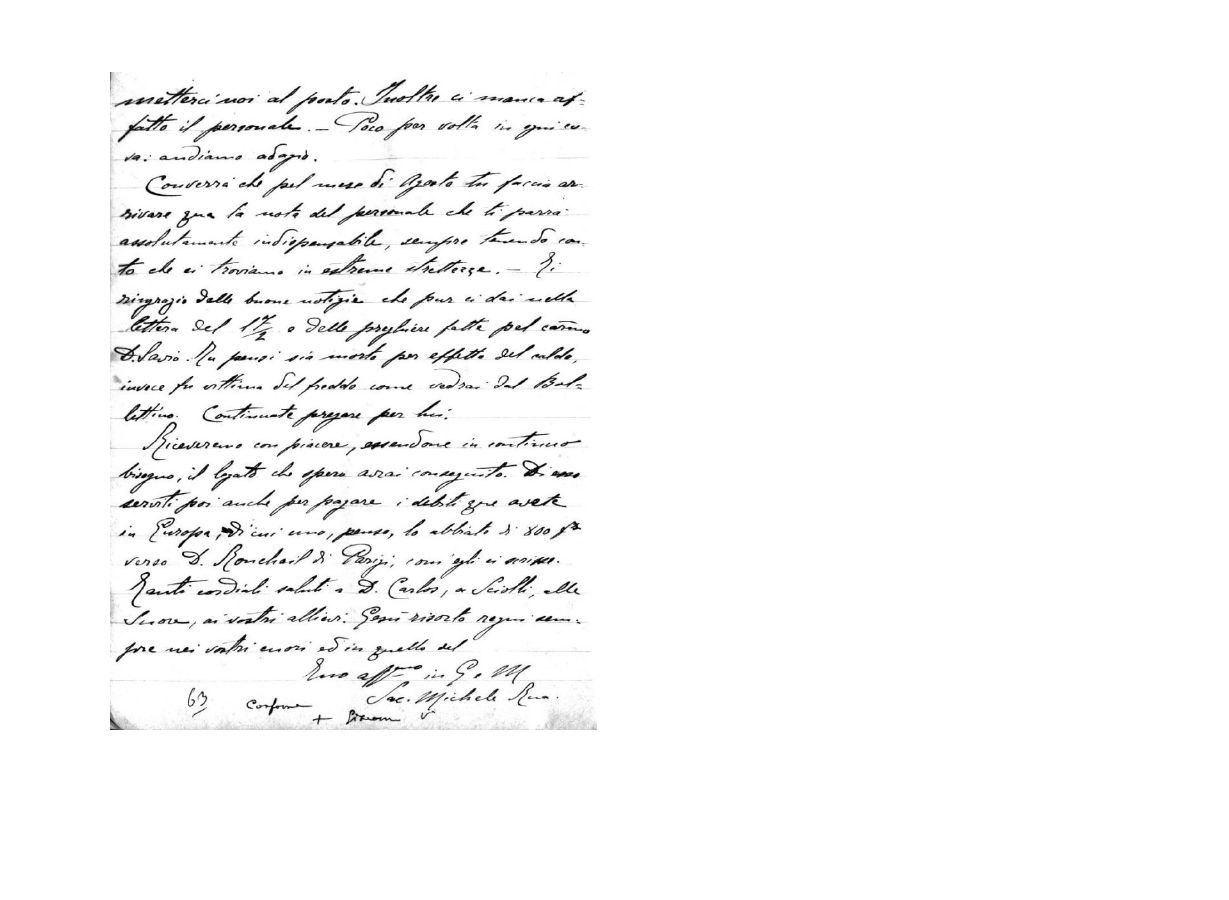 metterci noi al posto. Inoltre ci manca af-
fatto il personale. — Poco per volta in qui
va: andiamo adagio.
Converrà che pel mese di Agosto tu faccia ar-
rivare qua la nota del personale che ti parrà
assolutamente indispensabile, sempre tenendo con-
to che ci troviamo in estreme strettezze. — Ti
ringrazio delle buone notizie che pur ci dai nella
lettera del 17/2 e delle preghiere fatte pel car.mo
D. Savio. Tu pensi sia morto per effetto del caldo,
invece fu vittima del freddo come vedrai dal Bol-
lettino. Continuate pregare per lui.
Riceveremo con piacere, essendone in continuo
bisogno, il legato che spero avrai conseguito. Di esso
serviti poi anche per pagare i debiti que avete
in Europa, di cui uno, penso, lo abbiate di 800 f.chi
verso D. Ronchail di Parigi, com'egli ci scrisse.
Tanti cordiali saluti a D. Carlos, a Sciolli, alle
Suore, ai vostri allievi. Gesù risorto regni sem-
pre nei vostri cuori ed in quello del
Tuo aff.mo in G e M
Sac. Michele Rua.
63 Conforme
+ Giacomo V